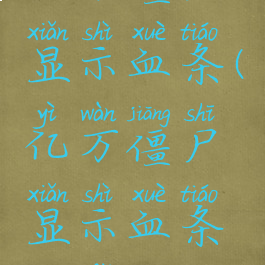 xiǎn shì xuè tiáo
显示血条(
yì wàn jiāng shī
亿万僵尸
xiǎn shì xuè tiáo
显示血条